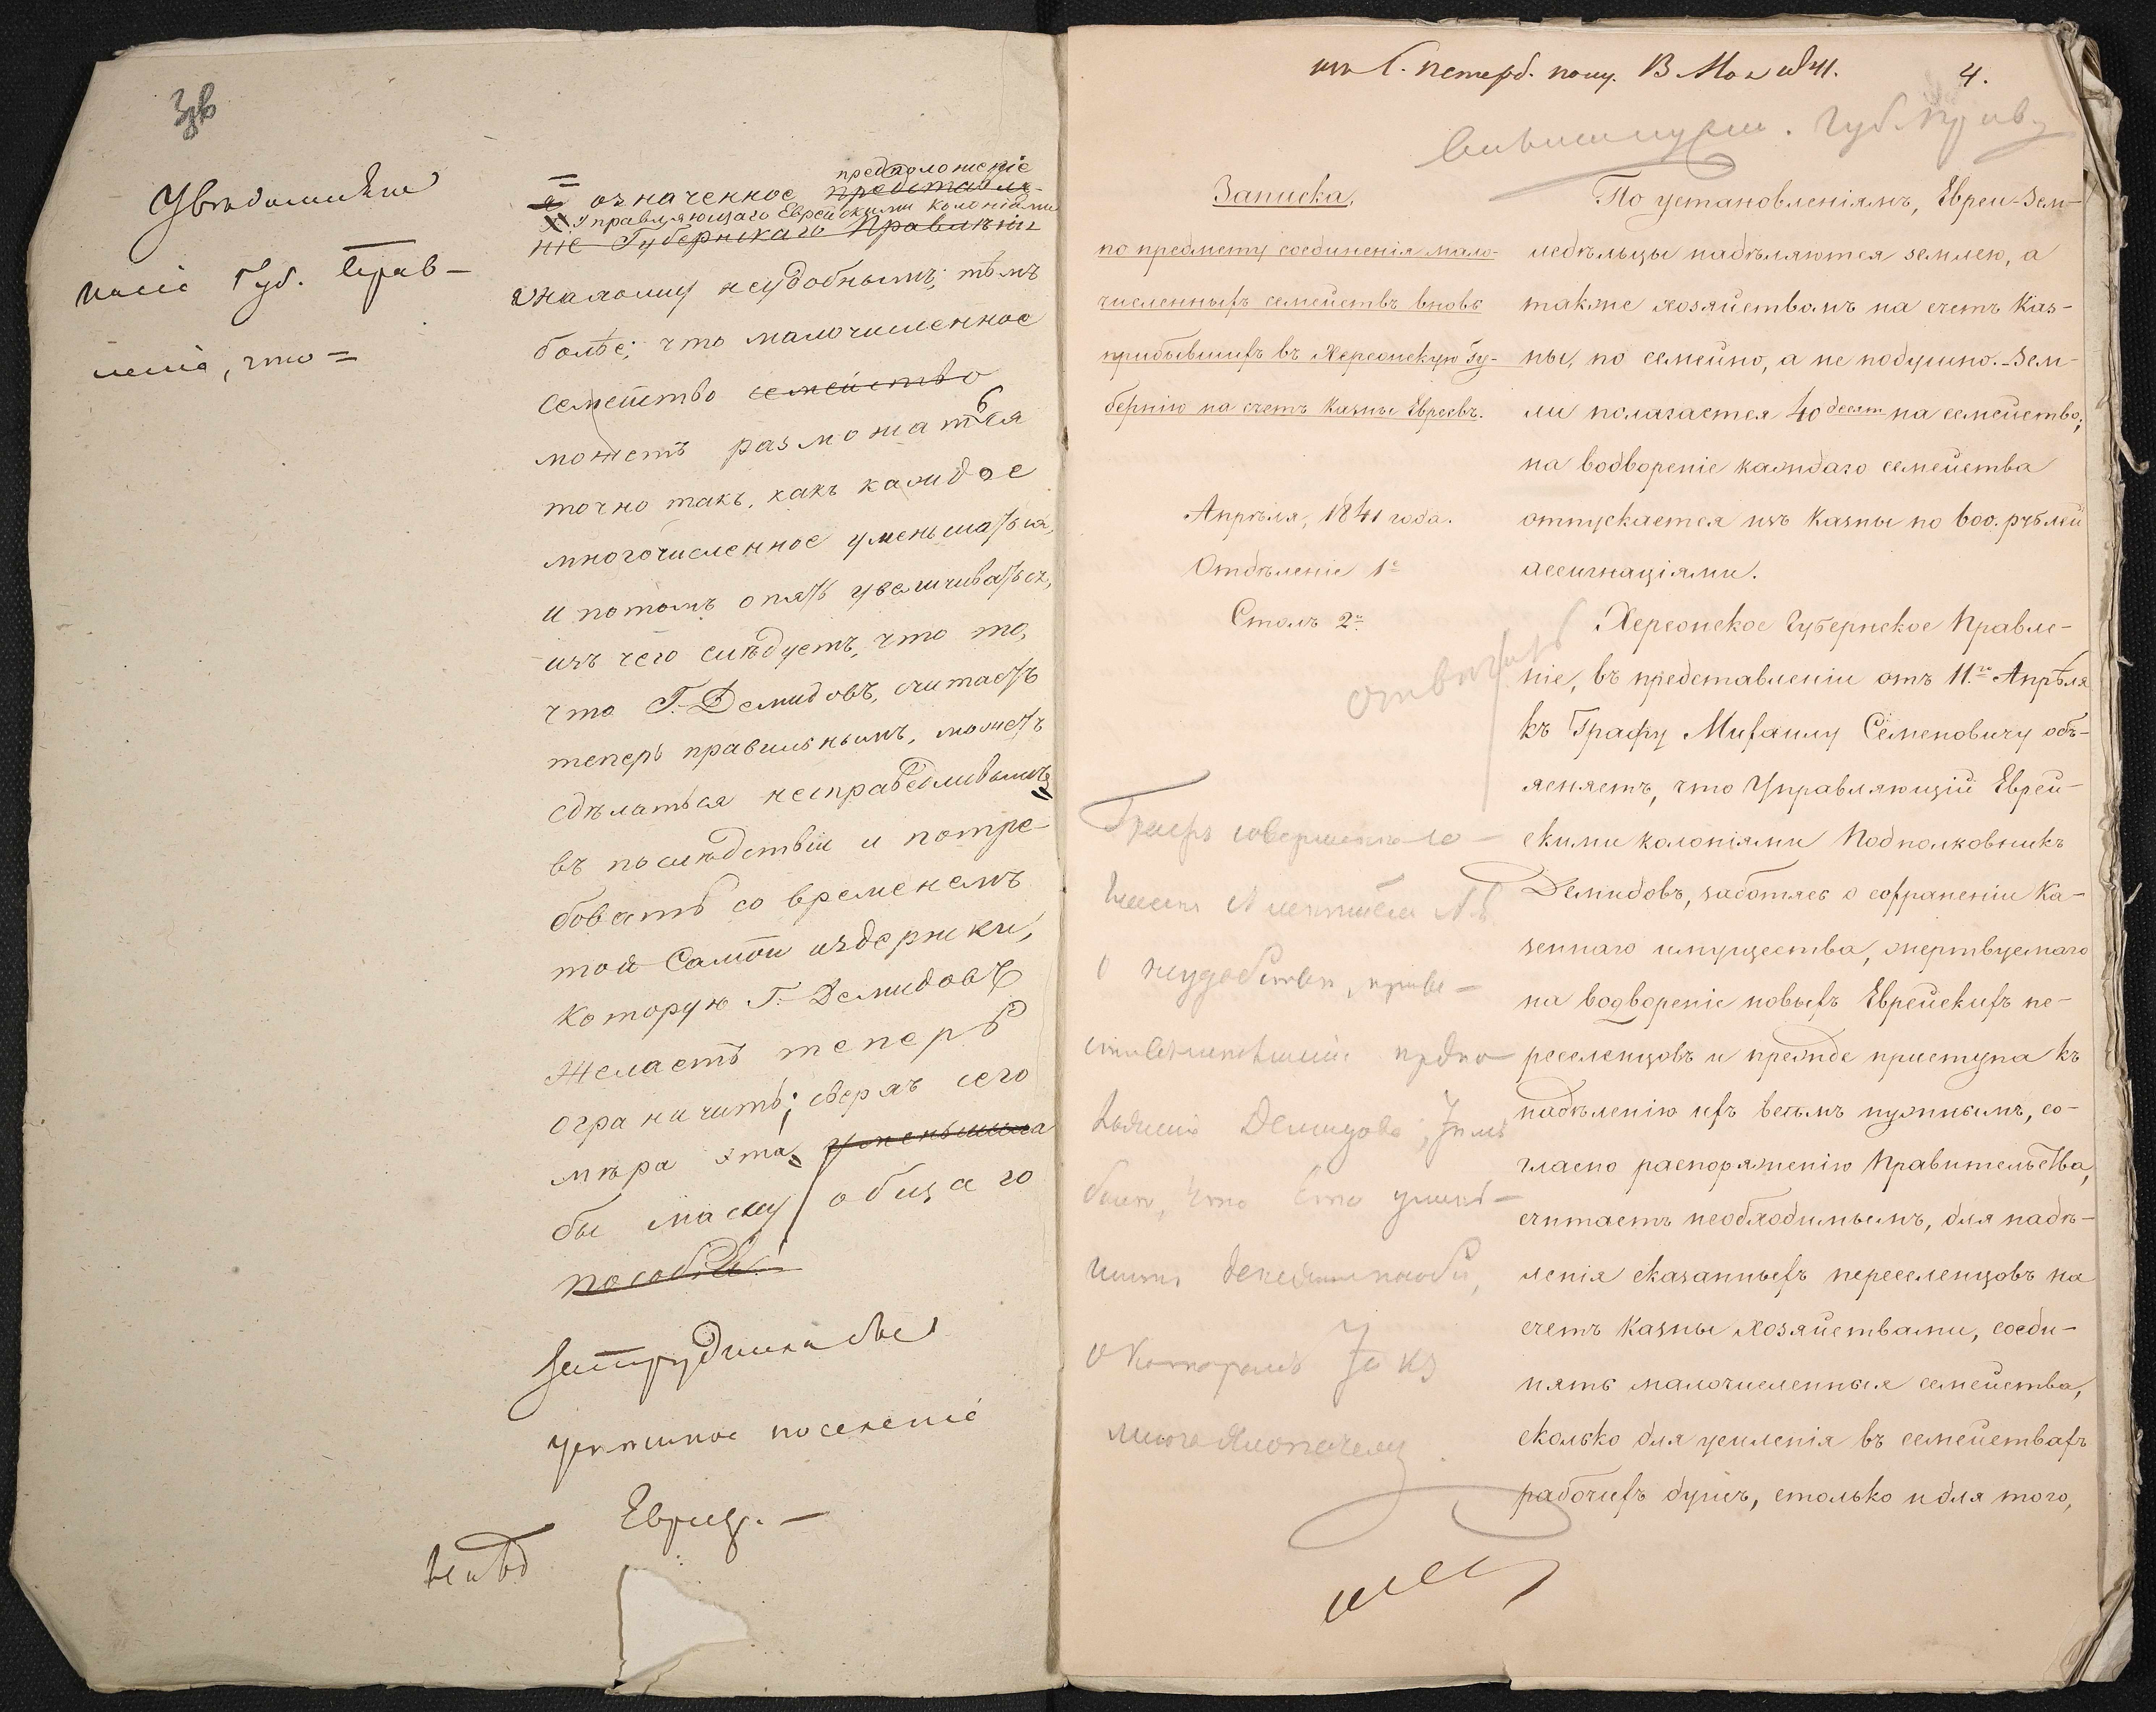 3в
Увѣдомленіе
Губ. Прав-
ленія, что =
предположеніе
означенное представле-
Управляющаго Еврейскими колоніями
ніе Губернскаго Правленія
нахожу неудобнымъ; тѣмъ
болѣе, что малочисленное
семейство семейство
можетъ размножаться
точно такъ, какъ каждое
многочисленное уменьшаться,
и потомъ опять увеличиваться,
изъ чего слѣдуетъ, что то,
что Г. Демидовъ, считаетъ
теперь правильнымъ, можетъ
сдѣлаться несправедливымъ
въ послѣдствіи и потре-
бовать со временемъ
той самой издержки,
которую Г. Демидовъ
желаетъ теперь
ограничить; сверхъ сего
мѣра эта уменьшила
бы массу общаго
пособія
затруднила бы
успѣшное поселеніе
Евреевъ. —
4.
Записка,
по предмету соединенія мало-
численныхъ семействъ вновь
прибывшихъ въ Херсонскую Гу-
бернію на счетъ Казны Евреевъ.
Апрѣля, 1841 года.
Отдѣленіе 1е
Столъ 2й
По установленіямъ, Евреи-Зем-
ледѣльцы надѣляются землею, а
также хозяйствомъ на счетъ Каз-
ны, по семейно, а не подушно. - Зем-
ли полагается 40 десят. на семейство;
на водвореніе каждаго семейства
отпускается изъ Казны по 600. рублей
ассигнаціями.
Херсонское Губернское Правле-
ніе, въ представленіи отъ 11.го Апрѣля
къ Графу Михаилу Семеновичу объ-
ясняетъ, что Управляющій Еврей-
скими колоніями Подполковникъ
Демидовъ, заботясь о сохраненіи Ка-
зеннаго имущества, жертвуемаго
на водвореніе новыхъ Еврейскихъ пе-
реселенцовъ и прежде приступа къ
надѣленію ихъ всѣмъ нужнымъ, со-
гласно распоряженію Правительства,
считаетъ необходимымъ, для надѣ-
ленія сказанныхъ переселенцовъ на
счетъ Казны хозяйствами, соеди-
нять малочисленныя семейства,
сколько для усиленія въ семействахъ
рабочихъ душъ, столько и для того,
отвѣчать
Графъ совершенно со-
о неудобствѣ, приве-
Демидова,